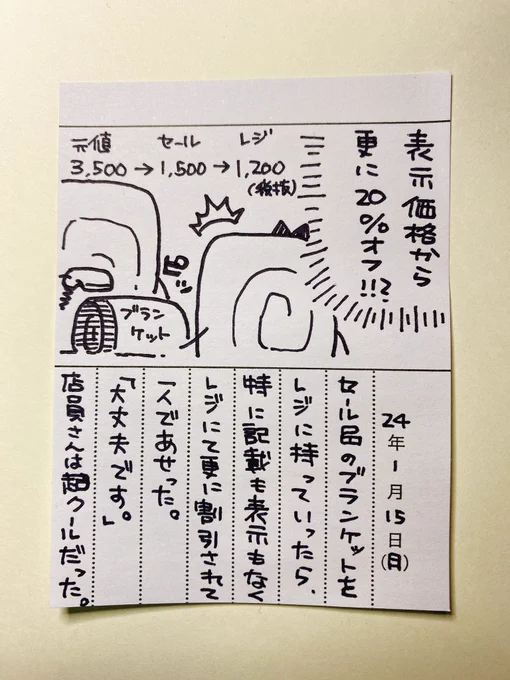 表示価格から
更に20%オフ!!?
元値 セール レジ
3,500→1,500→1,200
(税抜)
ブラン
ケット
24年1月15日(月)
セール品のブランケットを
レジに持っていったら、
特に記載も表示もなく
レジにて更に割引されて
一人であせった。
「大丈夫です。」
店員さんは超クールだった。